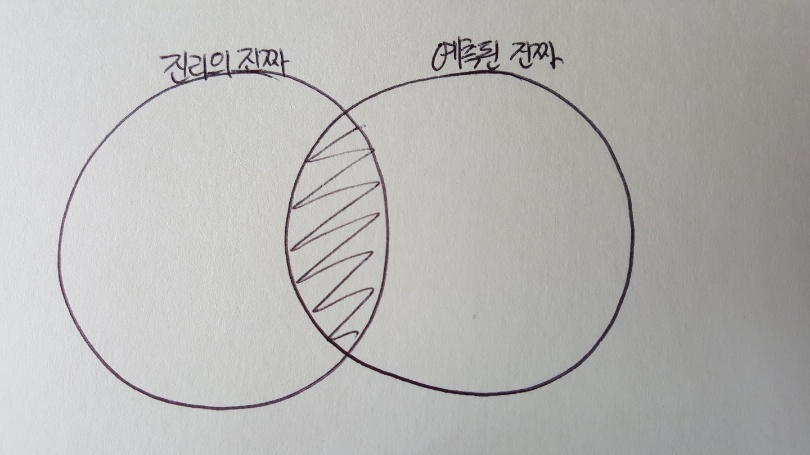 진리의 진짜
예측된 진짜